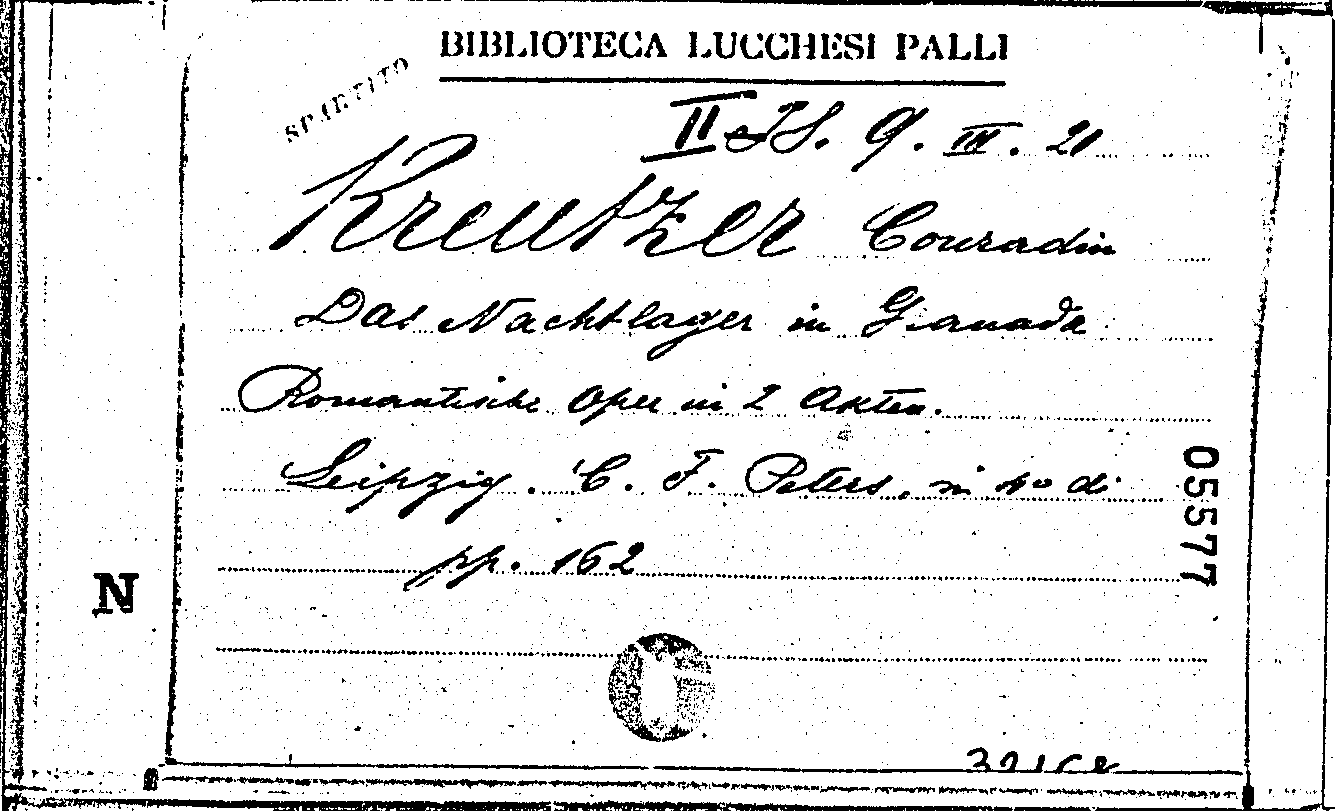 BIBLIOTECA LUCCHESI PALLI
SPARTITO
II 9. III. 21
Kreutzer Conradin
Das Nachtlager in Granada
Romantische Oper in 2 Akten.
Leipzig. C. F. Peters, in 4° di
pp. 162
05577
N